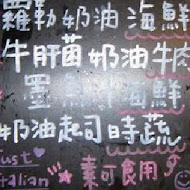 羅勒奶油海鮮
牛肝菌奶油牛肉
墨魚海鮮
奶油起司時蔬
Just
Italian
素可食用